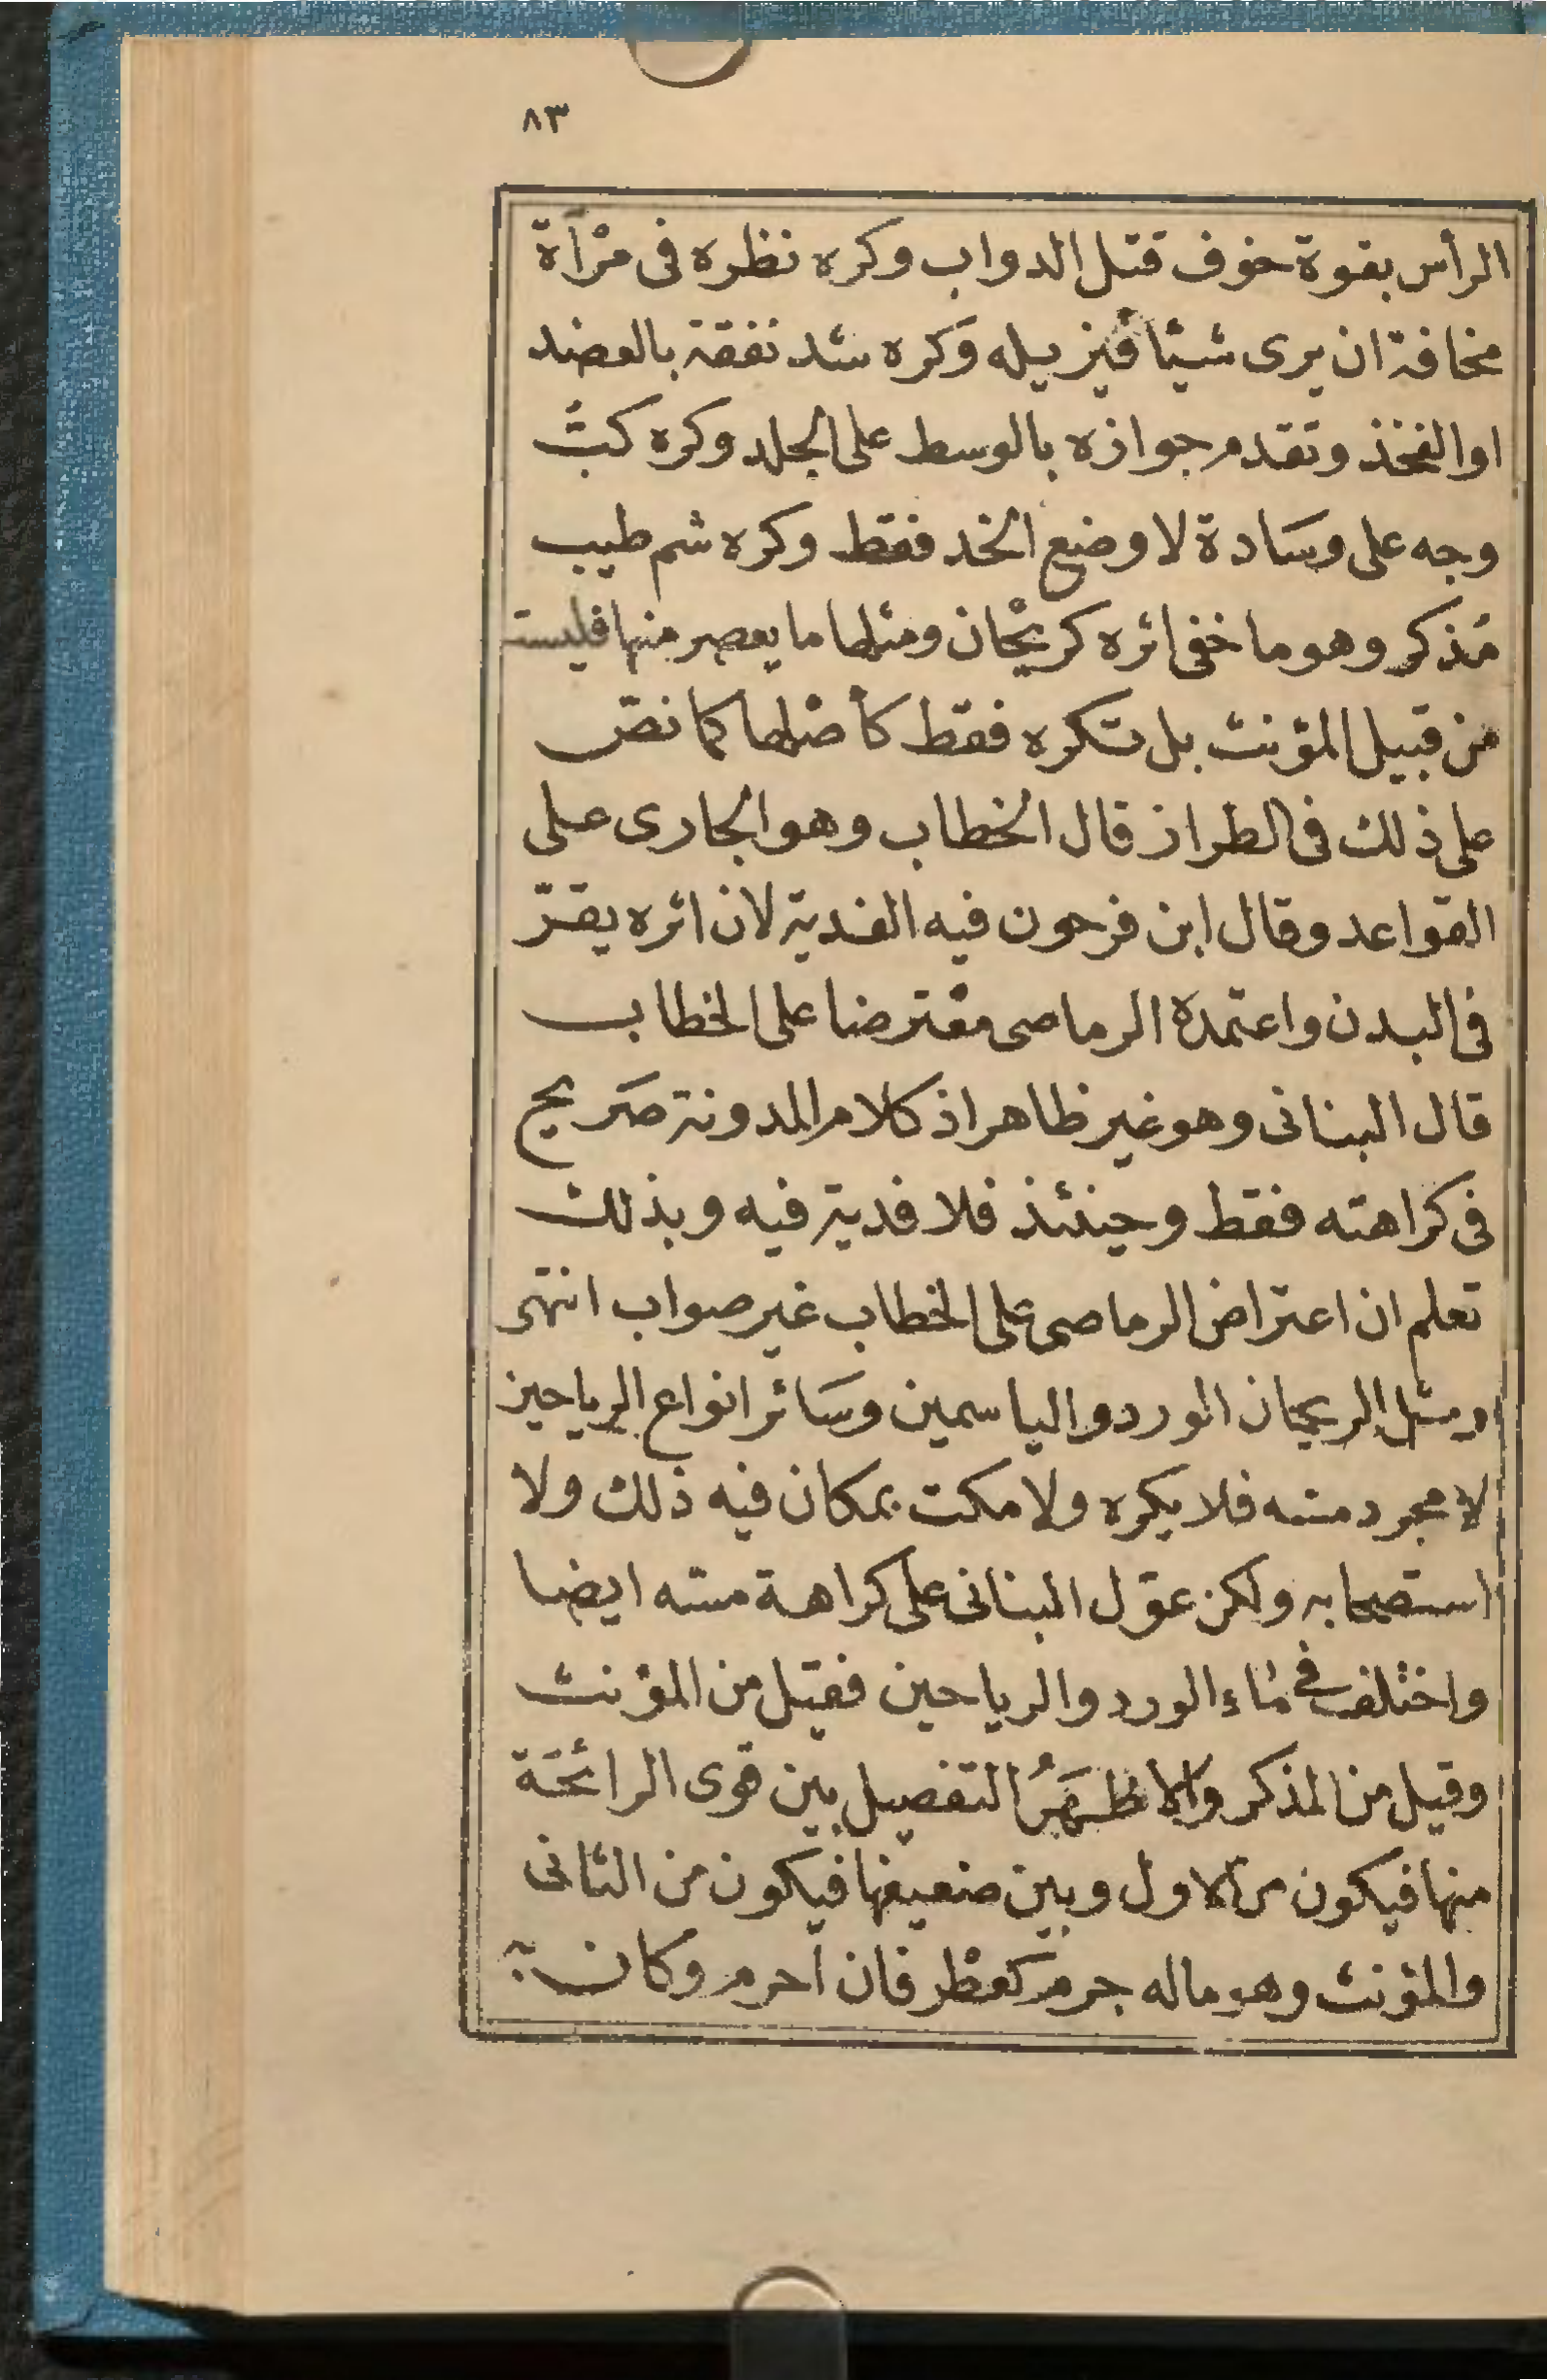 ٨٣
الرأس بقوة خوف قتل الدواب وكره نظره فى مرْآة
مخافة ان يرى شيئا فيزيله وَكره شد نفقة بالعضد
او الفخذ وتقدم جوازه بالوسط على الجلد وكره كبُّ
وجه على وسَادة لا وضع الخد فقط وكره شم طيب
مَذكر وهو ما خفى اثره كريْحَان ومثلها ما يعصر منها فليست
من قبيل المؤنث بل تكره فقط كأصْلها كما نصّ
على ذلك فى الطراز قال الحطاب وهو الجارى على
القواعد وقال ابن فرحون فيه الفدية لان اثره يقرّ
فى البدن واعتمدَه الرماصى معْترضا على الحطاب
قال البنانى وهو غير ظاهر اذ كلام المدونة صَريح
فى كراهته فقط وحينئذ فلا فدية فيه وبذلك
تعلم ان اعتراض الرماصى على الحطاب غير صواب انتهى
ومثل الريحان الورد والياسمين وسَائر انواع الرياحين
لا مجرد مسّه فلا يكره ولا مكث بمكان فيه ذلك ولا
استصحابه ولكن عوّل البنانى على كراهة مسّه ايضا
واختلف فى مَاء الورد والرياحين فقيل من المؤنث
وقيل من المذكر والاظهَرُ التفصيل بين قوى الرائحَة
منها فيكون من الاول وبين ضعيفها فيكون من الثانى
والمؤنث وهو ماله جرم كعطْر فان احرم وكان به